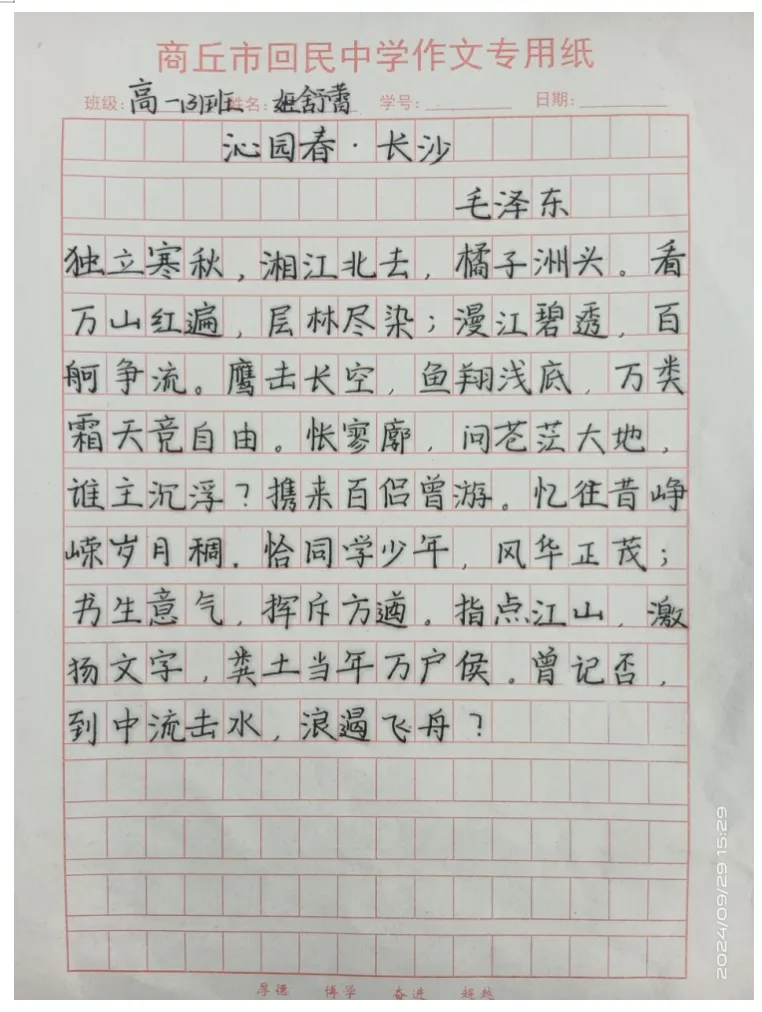 商丘市回民中学作文专用纸
班级:高一(3)班 姓名: 班舒蕾 学号: 日期:
沁园春·长沙
毛泽东
独立寒秋,湘江北去,橘子洲头。看
万山红遍,层林尽染;漫江碧透,百
舸争流。鹰击长空,鱼翔浅底,万类
霜天竞自由。怅寥廓,问苍茫大地,
谁主沉浮?携来百侣曾游。忆往昔峥
嵘岁月稠.恰同学少年,风华正茂;
书生意气,挥斥方遒。指点江山,激
扬文字,粪土当年万户侯。曾记否,
到中流击水,浪遏飞舟?
厚德 博学 奋进 超越
2024/09/29 15:29